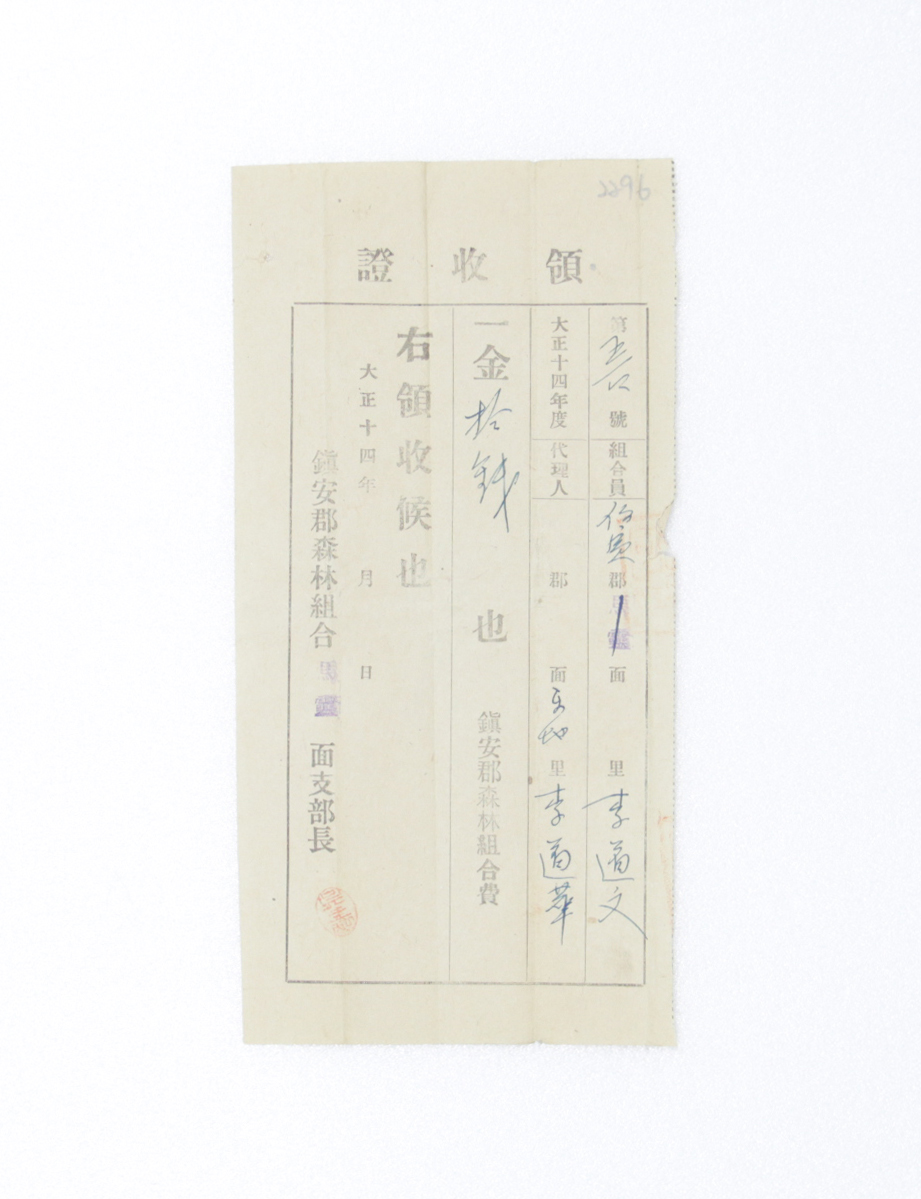 2296
領收證
第 號 組合員 郡 面 里 李道文
大正十四年度 代理人 郡 面 里 李道華
一金拾錢 也 鎭安郡森林組合費
右領收候也
大正十四年 月 日
鎭安郡森林組合 馬靈 面支部長